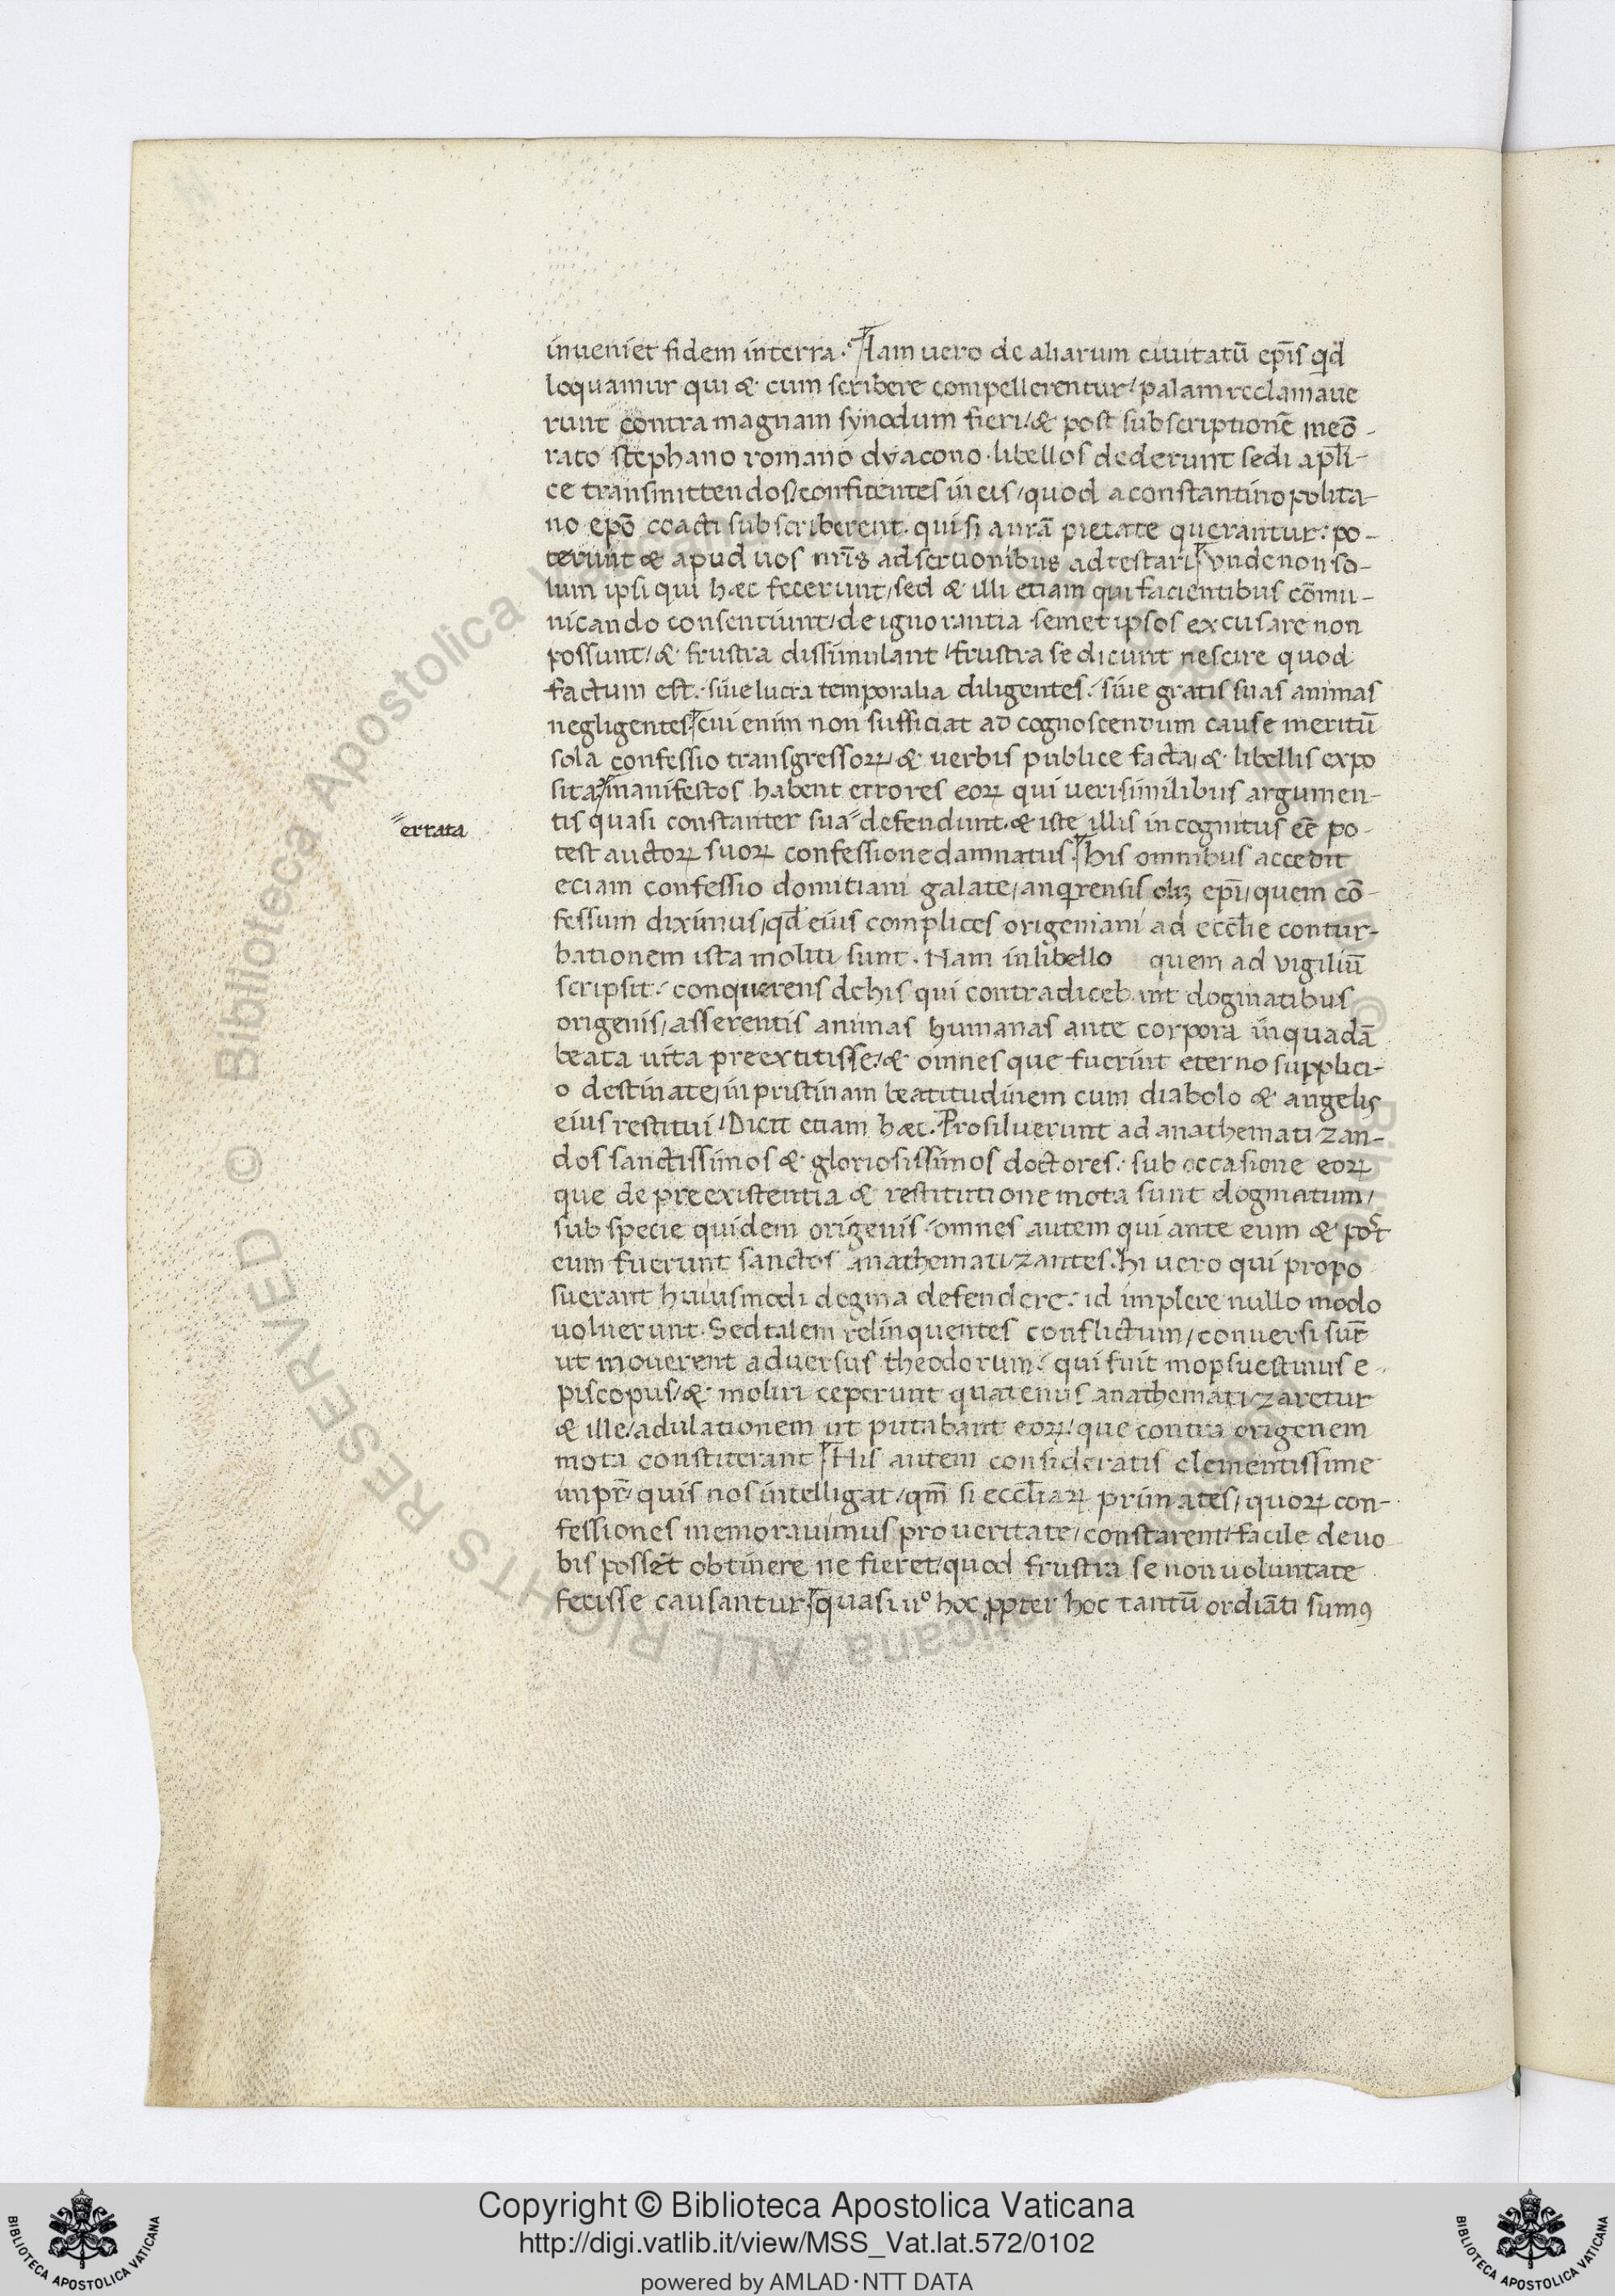 inueniet fidem interra. Iam uero de aliarum ciuitatū ep̄is qd̄
loquamur qui & cum scribere compellerentur/ palam reclamaue
runt contra magnam synodum fieri/ & post subscriptionē meō-
rato stephano romano dyacono. libellos dederunt sedi apl̄i-
ce transmittendos/ confitentes in eis/ quod a constantinopolita-
no ep̄o coacti subscriberent. qui si aurā pietate querantur: po-
terunt & apud uos nr̄is adsertionibus adtestari. vnde non so-
lum ipsi qui hæc fecerunt/ sed & illi etiam qui facientibus cōmu-
nicando consentiunt/ de ignorantia semet ipsos excusare non
possunt/ & frustra dissimulant/ frustra se dicunt nescire quod
factum est. siue lucra temporalia diligentes. siue gratis suas animas
negligentes. cui enim non sufficiat ad cognoscendum cause meritū
sola confessio transgressoꝝ/ & uerbis publice facta/ & libellis expo
sita. manifestos habent errores eoꝝ qui uerisimilibus argumen-
tis quasi constanter sua defendunt. & iste illis incognitus eē̄ po-
errata
test auctoꝝ suoꝝ confessione damnatus. his omnibus accedit
eciam confessio domitiani galate/ anqrensis olīȝ ep̄i/ quem cō-
fessum diximus/ qd̄ eius complices origeniani ad eccl̄ie contur-
bationem ista moliti sunt. Nam in libello quem ad vigiliū
scripsit. conquerens de his qui contradicebant dogmatibus
origenis/ asserentis animas humanas ante corpora in quadā
beata uita preextitisse/ & omnes que fuerint eterno supplici-
o destinate/ in pristinam beatitudinem cum diabolo & angelis
eius restitui/ Dicit etiam hæc. Prosiluerunt ad anathematizan-
dos sanctissimos & gloriosissimos doctores. sub occasione eoꝝ
que de preexistentia & restitutione mota sunt dogmatum/
sub specie quidem origenis. omnes autem qui ante eum & post
eum fuerunt sanctos anathematizantes. hi uero qui propo
suerant huiusmodi dogma defendere. id implere nullo modo
uoluerunt. Sed talem relinquentes conflictum/ conuersi sūt
ut mouerent aduersus theodorum. qui fuit mopsuestinus e-
piscopus/ & moliri ceperunt quatenus anathematizaretur
& ille/ adulationem ut putabant eoꝝ/ que contra origenem
mota constiterant. His autem consideratis clementissime
impr̄/ quis nos intelligat/ qm̄ si eccl̄iaꝝ primates/ quoꝝ con-
fessiones memorauimus pro ueritate/ constarent/ facile de uo
bis posset obtinere ne fieret/ quod frustra se non uoluntate
fecisse causantur. quasi uº hoc ꝓpter hoc tantū ordiāti sumꝯ
Copyright © Biblioteca Apostolica Vaticana
http://digi.vatlib.it/view/MSS_Vat.lat.572/0102
powered by AMLAD·NTT DATA
BIBLIOTECA APOSTOLICA VATICANA
BIBLIOTECA APOSTOLICA VATICANA